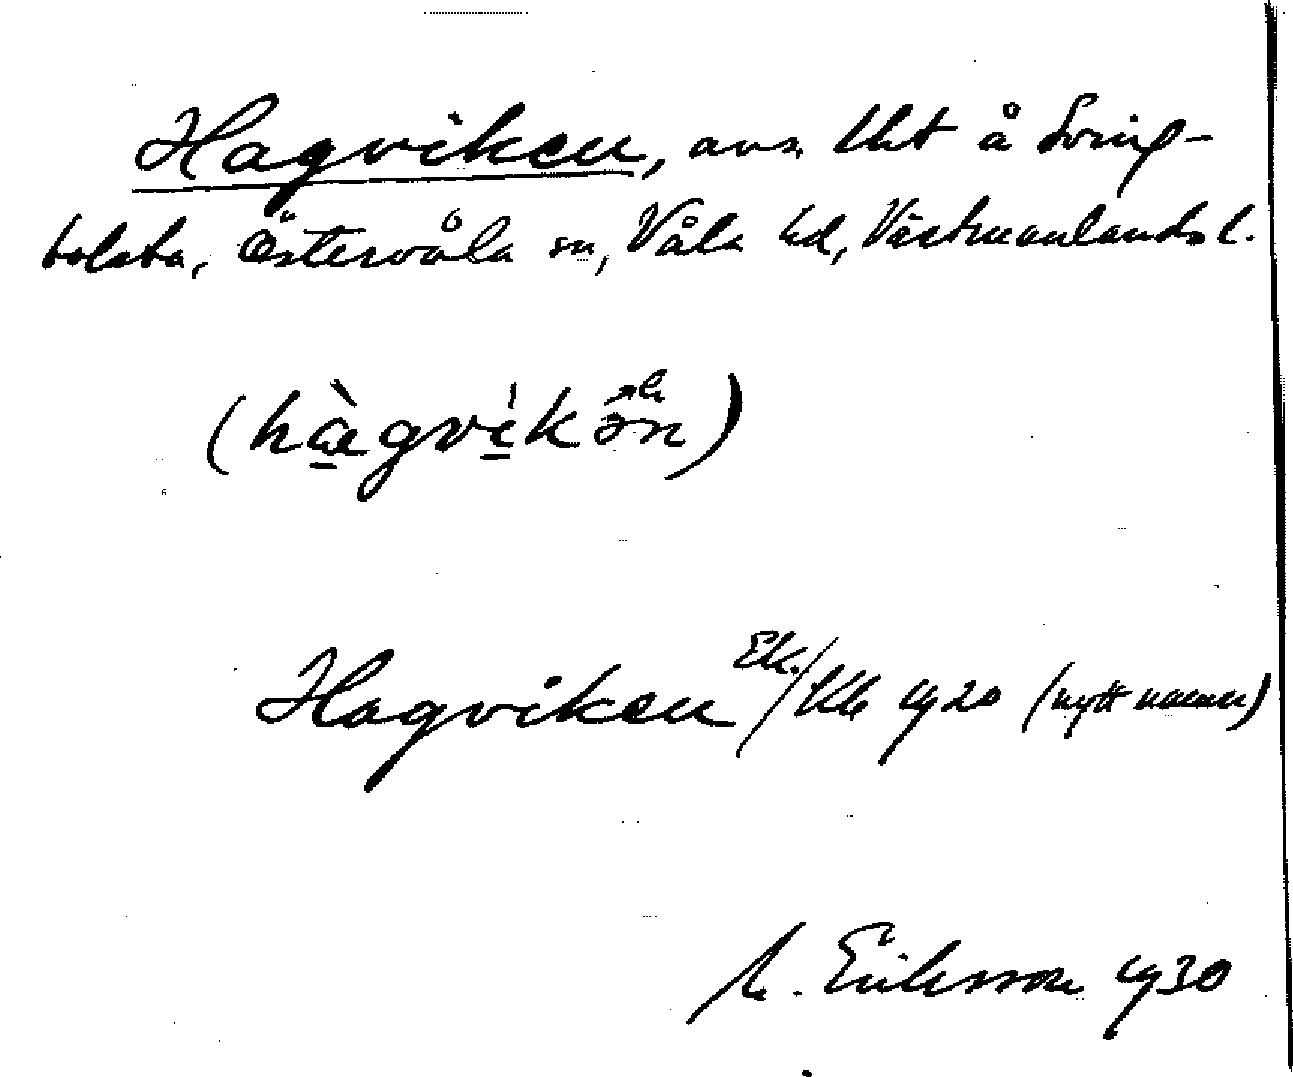 Hagviken, avs, lht å Sving-
bolsta, Östervåla sn, Våla hd, Västmanlands l.
(hàgvík ən)
Hagviken Ek./Kb 1920 (nytt namn)
M. Eriksson 1930